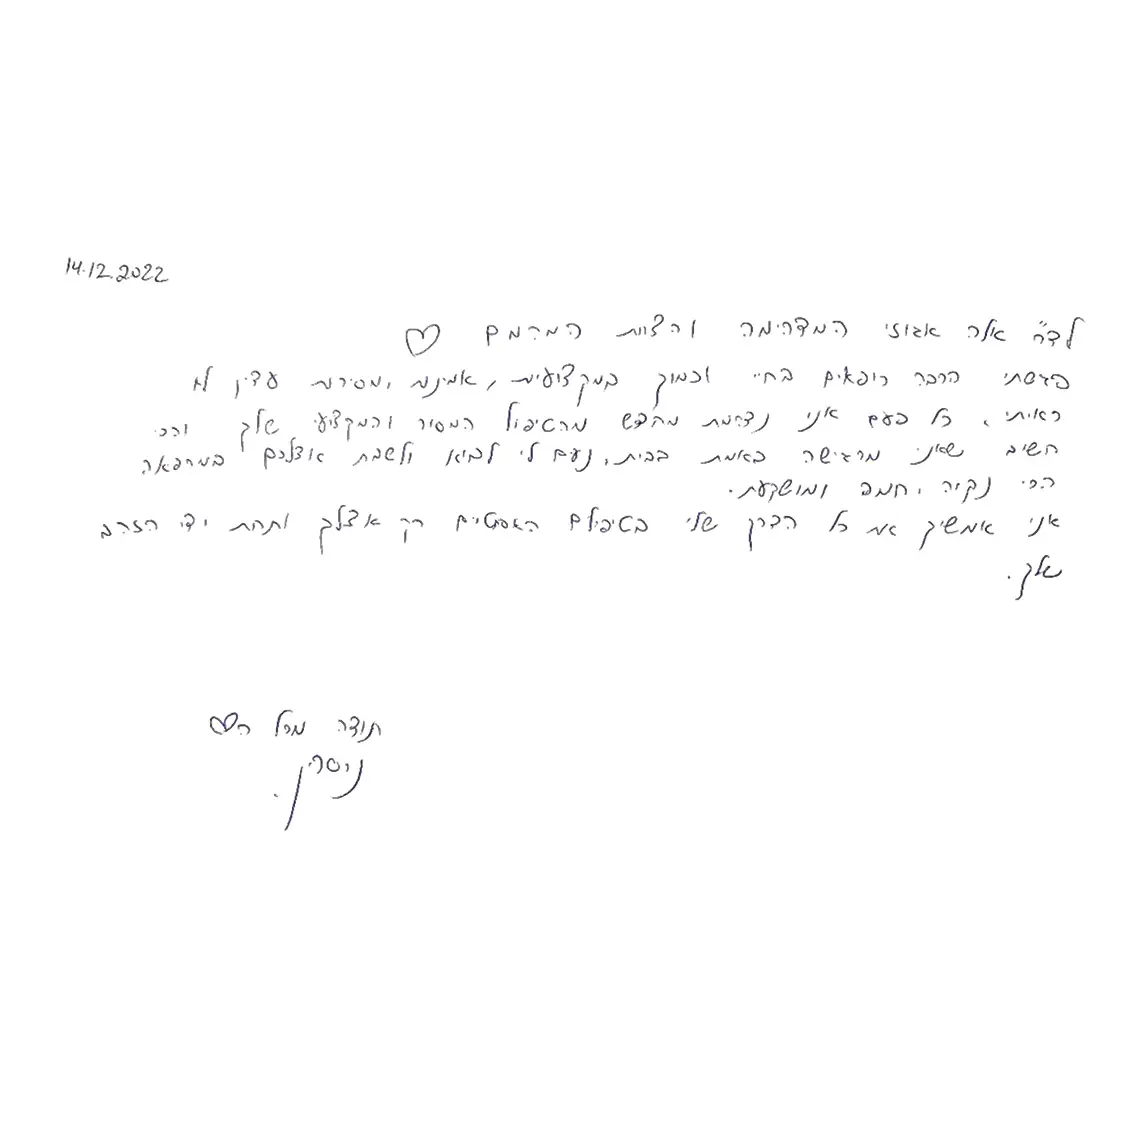 14.12.2022
לד״ר אלה אגוזי המדהימה והצוות המהמם ♡
פגשתי הרבה רופאים בחיי וכמוך במקצועיות, אמינות, ומסירות עדין לא
ראיתי, כל פעם אני נדהמת מחדש מהטיפול המסור והמקצועי שלך והכי
חשוב שאני מרגישה באמת בבית, נעים לי לבוא ולשבת אצלכם במרפאה
הכי נקיה, חמה ומושקעת.
אני אמשיך את כל הדרך שלי בטיפולים האסטטיים רק אצלך ותחת ידי הזהב
שלך.
תודה מכל ה♡
ניסרין.